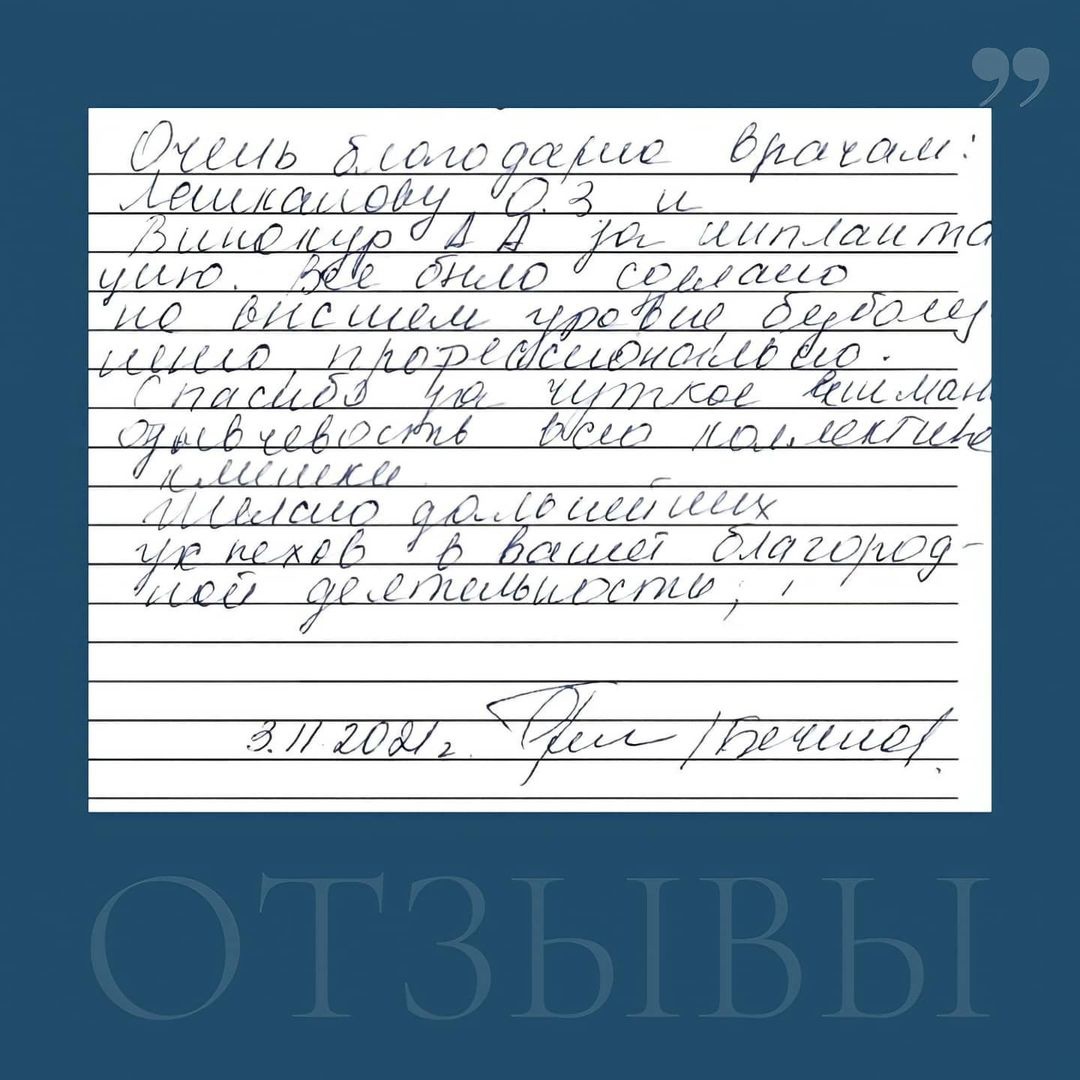 ”
Очень благодарна врачам:
Лешкалову О.З и
Винокур А А за имплонта
цию. Все было сделано
на высшем уровне, безболез
ненно, профессионально.
Спасибо за чуткое вниман
отзывчевость всю коллектива
клиники
Желаю дальнейших
успехов в вашей благород-
ной деятельность, !
3.11.2021г.
ОТЗЫВЫ